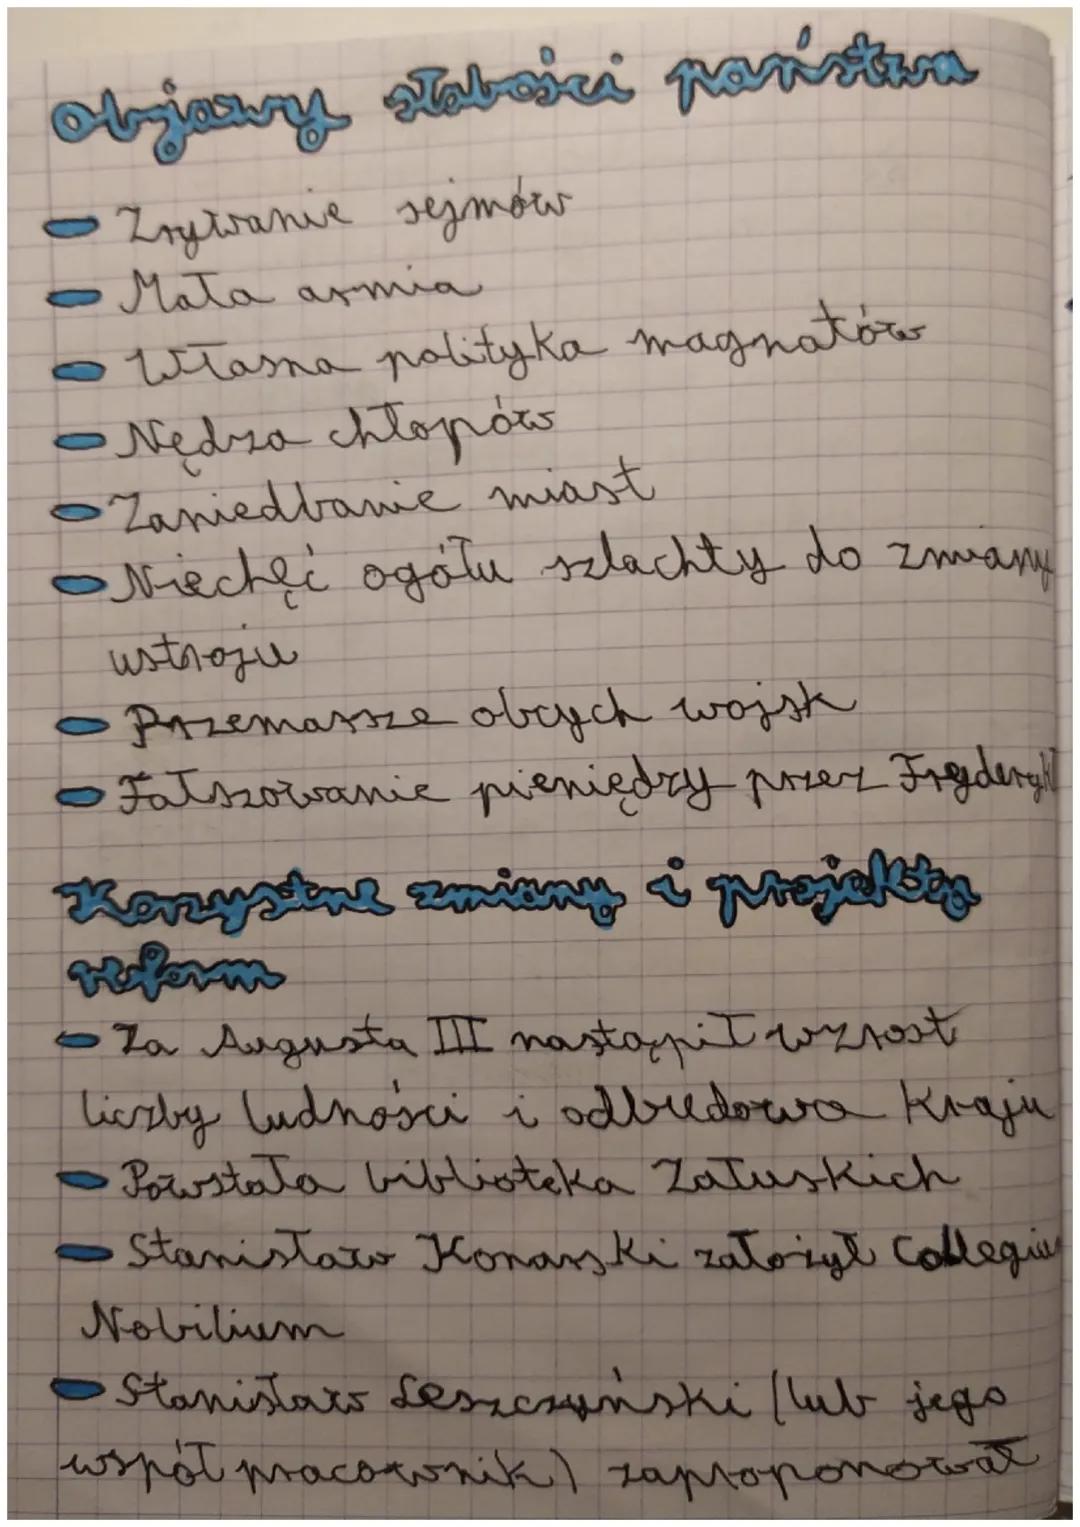 Objawy słabości państwa
Zrywanie sejmów
Mała armia
Własna polityka magnatów
Nędza chłopów
Zaniedbanie miast
Niechęć ogółu szlachty do zmiany
ustroju
Przemarsze obcych wojsk
Fałszowanie pieniędzy przez Fryderyk
Korzystne zmiany i projekty
reform
Za Augusta III nastąpił wzrost
liczby ludności i odbudowa kraju
Powstała biblioteka Załuskich
Stanisław Konarski założył Collegium
Nobilium
Stanisław Leszczyński (lub jego
współ pracownik) zaproponował